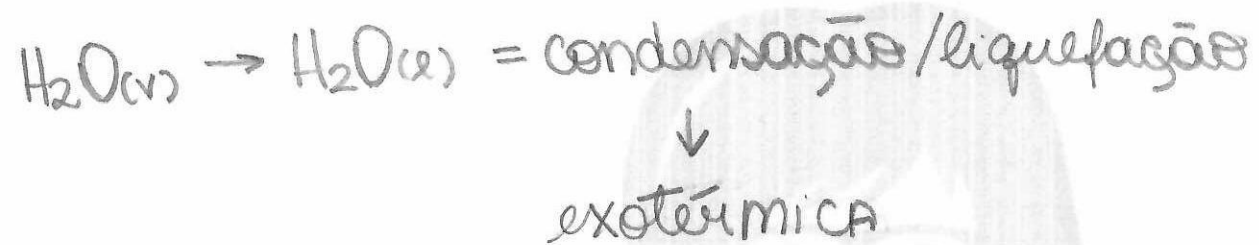 H₂O(v) → H₂O(l) = condensação/liquefação
↓
exotérmica